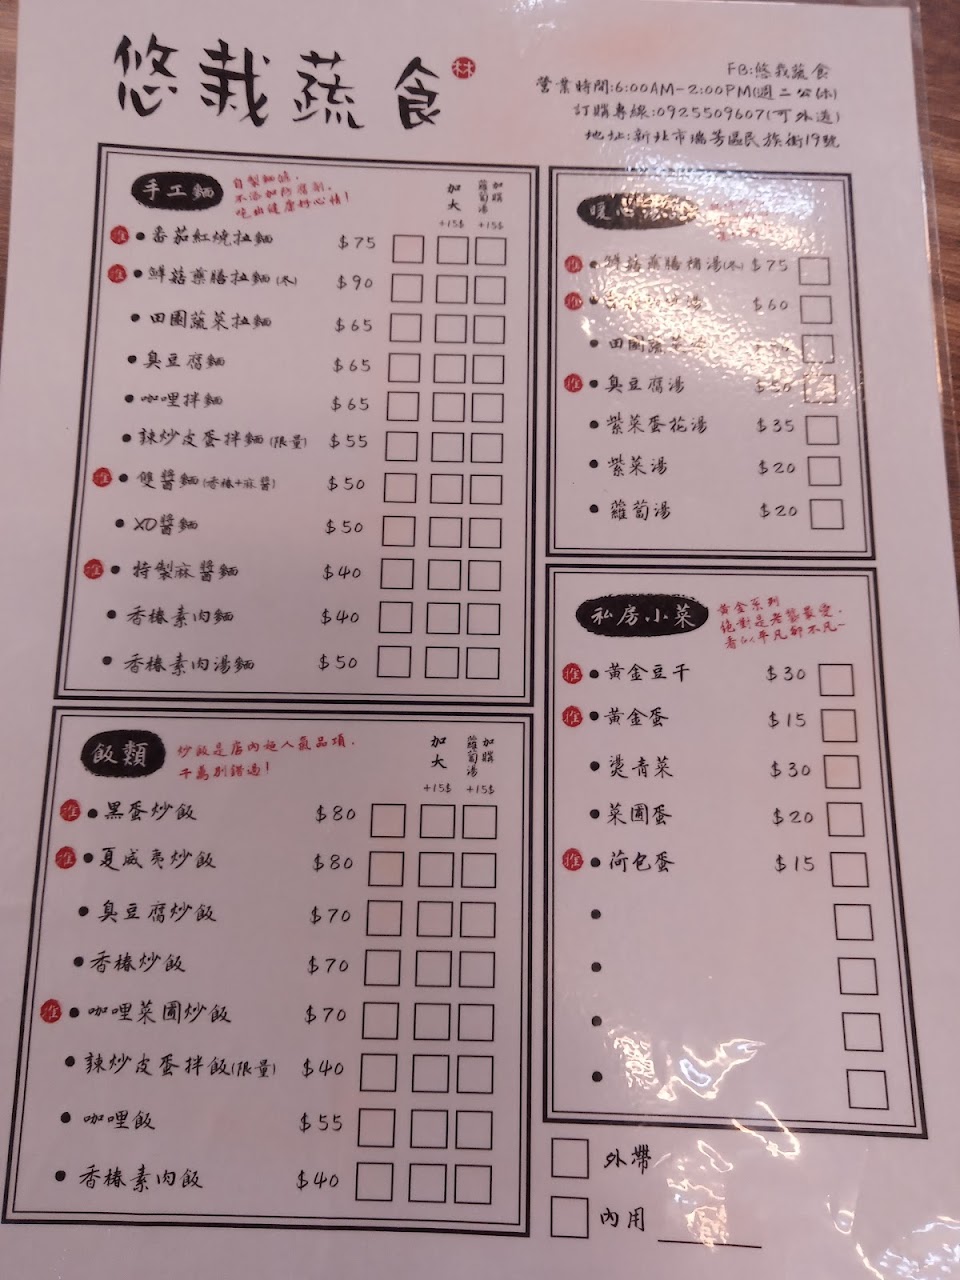 悠栽蔬食
林
FB:悠栽蔬食
營業時間:6:00AM-2:00PM(週二公休)
訂購專線:0925509607(可外送)
地址:新北市瑞芳區民族街19號
手工麵
自製麵條,
不添加防腐劑,
吃出健康好心情!
加大 +15$
加購蘿蔔湯 +15$
推 • 番茄紅燒拉麵 $75
推 • 鮮菇藥膳拉麵(冬) $90
• 田園蔬菜拉麵 $65
• 臭豆腐麵 $65
• 咖哩拌麵 $65
• 辣炒皮蛋拌麵(限量) $55
推 • 雙醬麵(香椿+麻醬) $50
• XO醬麵 $50
推 • 特製麻醬麵 $40
• 香椿素肉麵 $40
• 香椿素肉湯麵 $50
飯類
炒飯是店內超人氣品項,
千萬別錯過!
加大 +15$
加購蘿蔔湯 +15$
推 • 黑蛋炒飯 $80
推 • 夏威夷炒飯 $80
• 臭豆腐炒飯 $70
• 香椿炒飯 $70
推 • 咖哩菜圃炒飯 $70
• 辣炒皮蛋拌飯(限量) $40
• 咖哩飯 $55
• 香椿素肉飯 $40
暖心湯
推 • 鮮菇藥膳補湯(冬) $75
推 • 湯 $60
• 田園蔬菜
推 • 臭豆腐湯 $50
• 紫菜蛋花湯 $35
• 紫菜湯 $20
• 蘿蔔湯 $20
私房小菜
黃金系列
絕對是老饕最愛,
看似平凡卻不凡~
推 • 黃金豆干 $30
推 • 黃金蛋 $15
• 燙青菜 $30
• 菜圃蛋 $20
推 • 荷包蛋 $15
•
•
•
•
外帶
內用